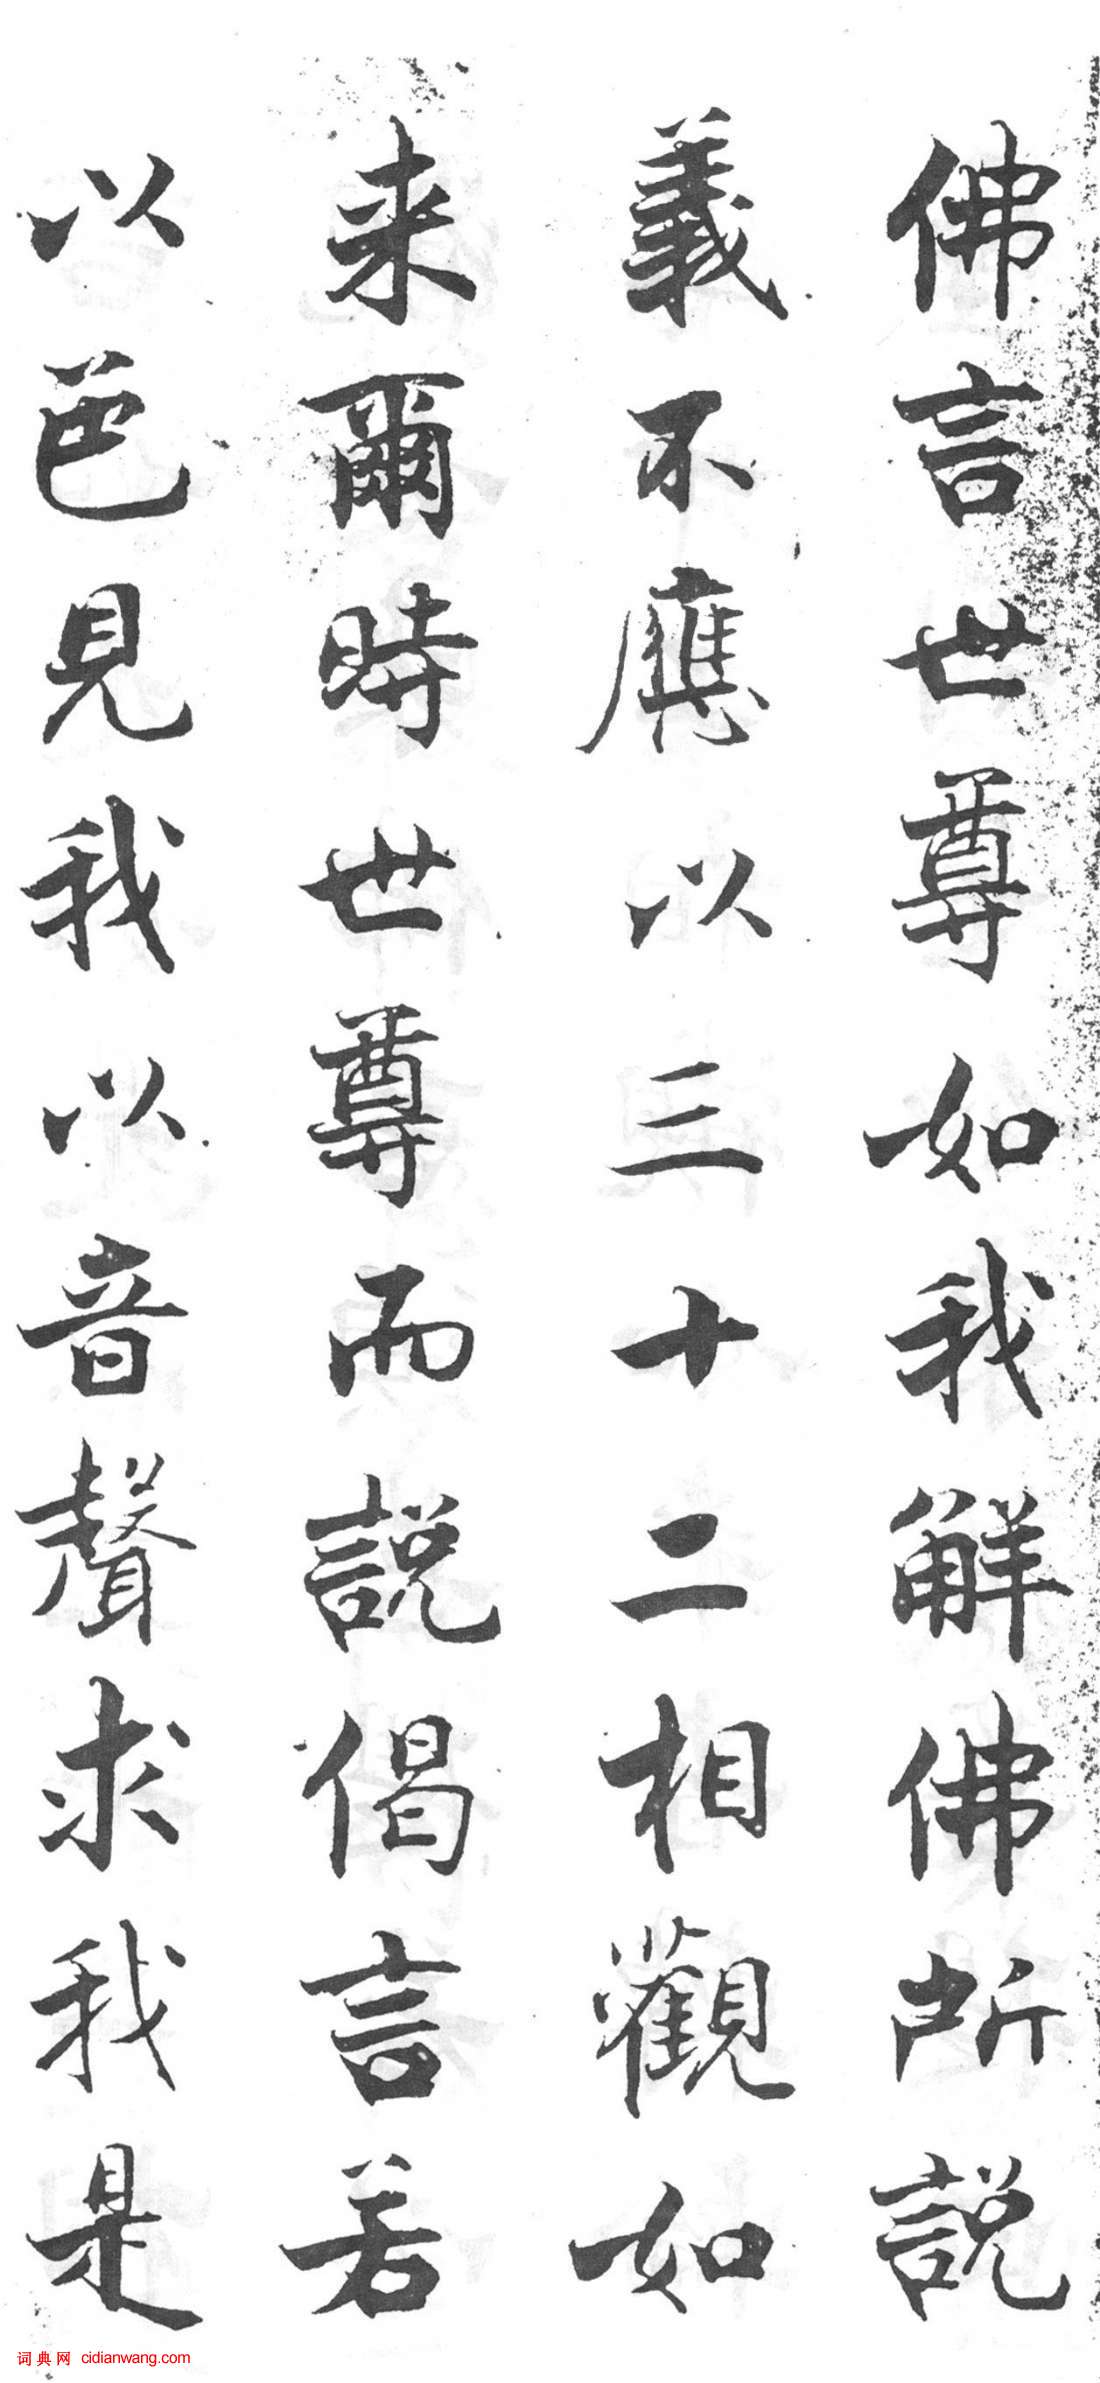 佛言世尊如我解佛所説
義不應以三十二相觀如
来爾時世尊而説偈言若
以色見我以音聲求我是
词典网 cidianwang.com